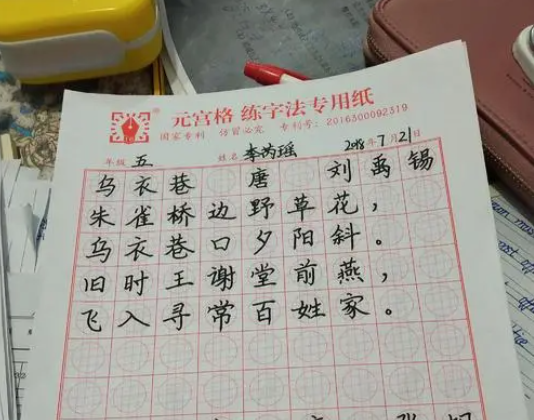 元宫格 练字法专用纸
国家专利 仿冒必究 专利号：2016300092319
年级 五 姓名 李芮瑶 2018年7月21日
乌衣巷 唐 刘禹锡
朱雀桥边野草花，
乌衣巷口夕阳斜。
旧时王谢堂前燕，
飞入寻常百姓家。